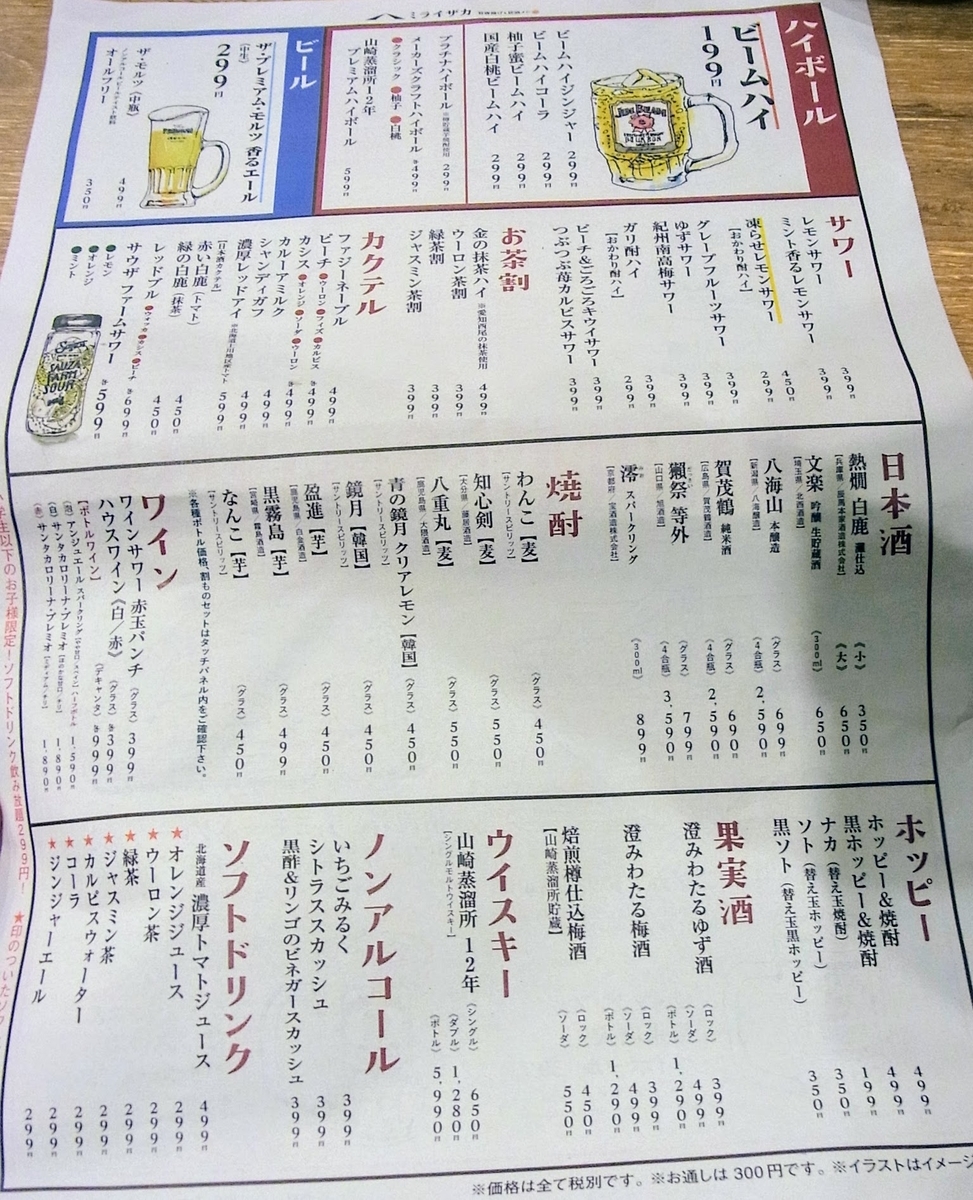 ミライザカ
ハイボール
ビームハイ
199円
ビームハイジンジャー 299円
ビームハイコーラ 299円
柚子蜜ビームハイ 299円
国産白桃ビームハイ 299円
プラチナハイボール 299円
メーカーズクラフトハイボール 各499円
●クラシック ●柚子 ●白桃
山崎蒸溜所12年
プレミアムハイボール 599円
ビール
ザ・プレミアム・モルツ 香るエール
(中生)
299円
ザ・モルツ(中瓶) 499円
オールフリー 350円
サワー
レモンサワー 399円
ミント香るレモンサワー 399円
凍らせレモンサワー 450円
[おかわり酎ハイ] 299円
グレープフルーツサワー 399円
ゆずサワー 399円
紀州南高梅サワー 399円
ガリ酎ハイ 399円
[おかわり酎ハイ] 299円
ピーチ&ごろごろキウイサワー 399円
つぶつぶ苺カルピスサワー 399円
お茶割
金の抹茶ハイ ※愛知西尾の抹茶使用 499円
ウーロン茶割 399円
緑茶割 399円
ジャスミン茶割 399円
カクテル
ファジーネーブル 499円
ピーチ ●ウーロン ●フィズ ●カルピス 各499円
カシス ●オレンジ ●ソーダ ●ウーロン 各499円
カルーアミルク 499円
シャンディガフ 499円
濃厚レッドアイ 599円
[日本酒カクテル]
赤い白鹿(トマト) 450円
緑の白鹿(抹茶) 450円
レッドブル ●ウォッカ ●カシス ●ピーチ 各699円
サウザ ファームサワー 各599円
●レモン
●オレンジ
●ミント
SAUZA FARM SOUR
日本酒
熱燗 白鹿 灘仕込 《小》 350円
[兵庫県/辰馬本家酒造株式会社] 《大》 650円
文楽 吟醸 生貯蔵酒 (300ml) 650円
[埼玉県/北西酒造]
八海山 本醸造 (グラス) 699円
[新潟県/八海醸造] (4合瓶) 2,590円
賀茂鶴 純米酒 (グラス) 690円
[広島県/賀茂鶴酒造] (4合瓶) 2,590円
獺祭 等外 (グラス) 799円
[山口県/旭酒造] (4合瓶) 3,590円
澪 スパークリング (300ml) 899円
[京都府/宝酒造株式会社]
焼酎
わんこ【麦】 (グラス) 450円
[サントリースピリッツ]
知心剣【麦】 (グラス) 550円
[大分県/藤居酒造]
八重丸【麦】 (グラス) 550円
[鹿児島県/大隅酒造]
青の鏡月 クリアレモン【韓国】 (グラス) 450円
[サントリースピリッツ]
鏡月【韓国】 (グラス) 450円
[サントリースピリッツ]
盈進【芋】 (グラス) 450円
[鹿児島県/白金酒造]
黒霧島【芋】 (グラス) 499円
[宮崎県/霧島酒造]
なんこ【芋】 (グラス) 450円
[サントリースピリッツ]
※各種ボトル価格、割ものセットはタッチパネル内をご確認下さい。
ワイン
ワインサワー 赤玉パンチ (グラス) 399円
ハウスワイン《白/赤》 (グラス) 各399円
(デキャンタ) 各999円
【ボトルワイン】
1,590円
(白) サンタカロリーナ・プレミオ 1,890円
(赤) サンタカロリーナ・プレミオ 1,890円
ホッピー
ホッピー&焼酎 499円
黒ホッピー&焼酎 499円
ナカ(替え玉焼酎) 199円
ソト(替え玉ホッピー) 350円
黒ソト(替え玉黒ホッピー) 350円
果実酒
澄みわたるゆず酒 (ロック) 399円
(ソーダ) 499円
(ボトル) 1,290円
澄みわたる梅酒 (ロック) 399円
(ソーダ) 499円
(ボトル) 1,290円
焙煎樽仕込梅酒 (ロック) 450円
[山崎蒸溜所貯蔵] (ソーダ) 550円
ウイスキー
山崎蒸溜所 12年 (シングル) 650円
[シングルモルトウイスキー] (ダブル) 1,280円
(ボトル) 5,990円
ノンアルコール
いちごみるく 399円
シトラススカッシュ 399円
黒酢&リンゴのビネガースカッシュ 399円
ソフトドリンク
北海道産 濃厚トマトジュース 499円
★オレンジジュース 299円
★ウーロン茶 299円
★緑茶 299円
★ジャスミン茶 299円
★カルピスウォーター 299円
★コーラ 299円
★ジンジャーエール 299円
学生以下のお子様限定!ソフトドリンク飲み放題299円! ★印のついたソフ
※価格は全て税別です。※お通しは300円です。※イラストはイメージ